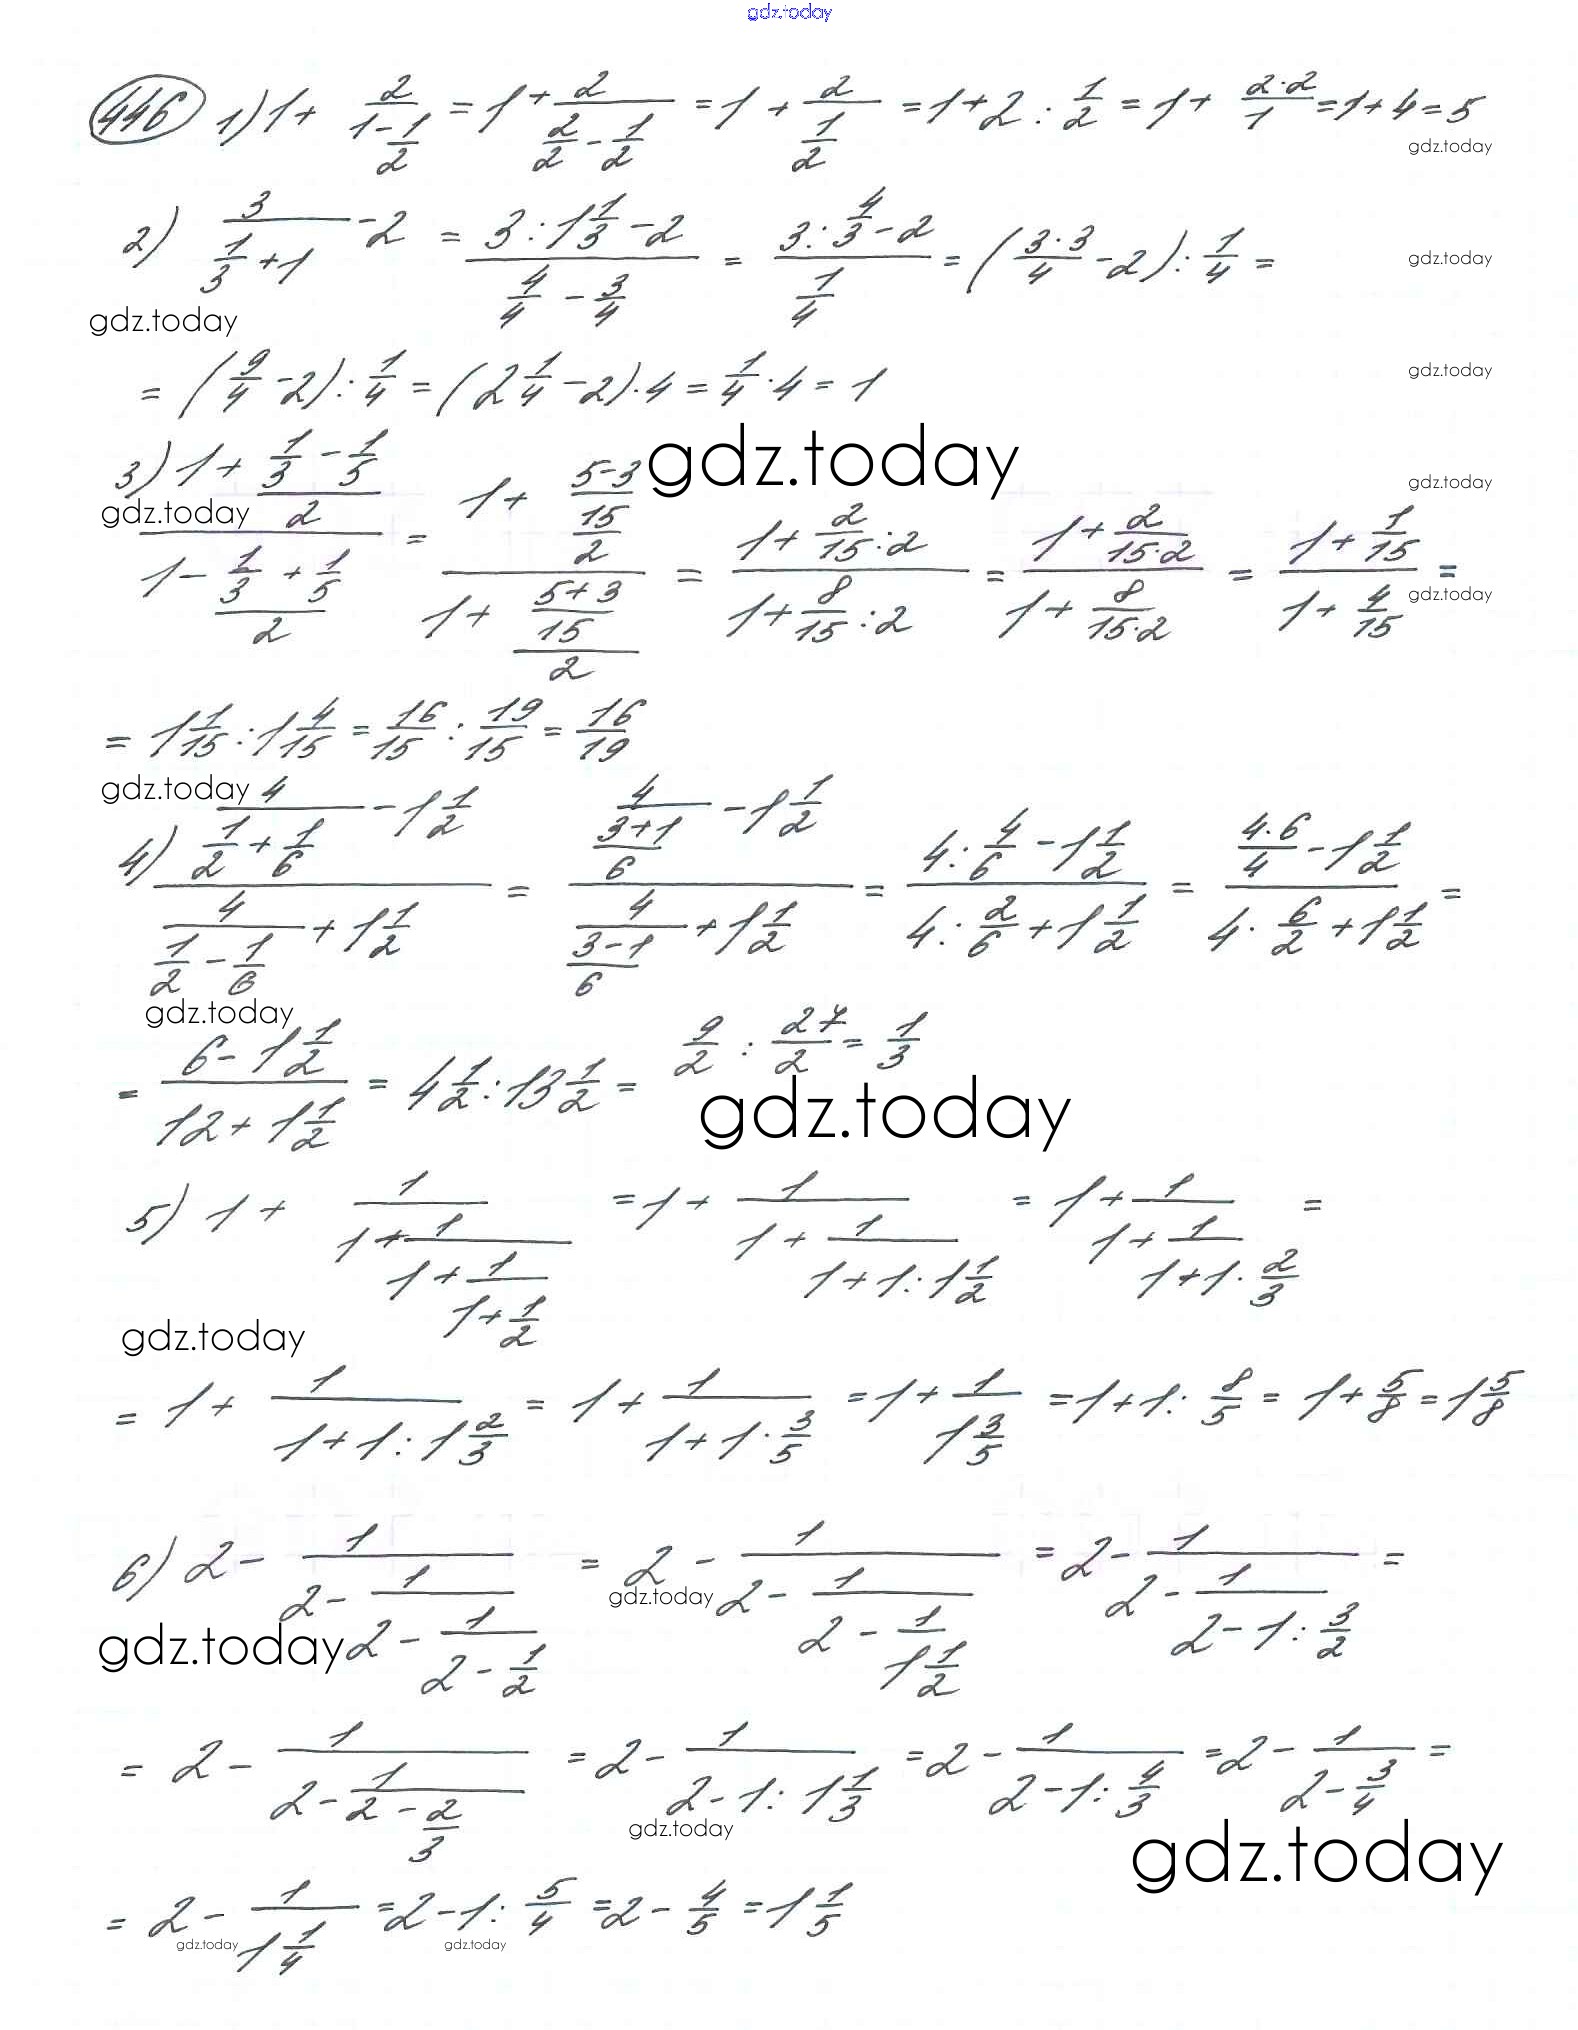 gdz.today
446 1) 1 + 2/(1 - 1/2) = 1 + 2/(2/2 - 1/2) = 1 + 2/(1/2) = 1 + 2 : 1/2 = 1 + (2·2)/1 = 1 + 4 = 5
gdz.today
2) 3/(1/3 + 1) - 2 = (3 : 1 1/3 - 2)/(4/4 - 3/4) = (3 : 4/3 - 2)/(1/4) = ((3·3)/4 - 2) : 1/4 =
gdz.today
gdz.today
= (9/4 - 2) : 1/4 = (2 1/4 - 2) · 4 = 1/4 · 4 = 1
gdz.today
gdz.today
3) (1 + (1/3 - 1/5)/2)/(1 - (1/3 + 1/5)/2) = (1 + ((5-3)/15)/2)/(1 + ((5+3)/15)/2) = (1 + 2/15 : 2)/(1 + 8/15 : 2) = (1 + 2/(15·2))/(1 + 8/(15·2)) = (1 + 1/15)/(1 + 4/15) =
gdz.today
gdz.today
gdz.today
= 1 1/15 : 1 4/15 = 16/15 : 19/15 = 16/19
gdz.today
4) (4/(1/2 + 1/6) - 1 1/2)/(4/(1/2 - 1/6) + 1 1/2) = (4/((3+1)/6) - 1 1/2)/(4/((3-1)/6) + 1 1/2) = (4 : 4/6 - 1 1/2)/(4 : 2/6 + 1 1/2) = ((4·6)/4 - 1 1/2)/(4 · 6/2 + 1 1/2) =
gdz.today
= (6 - 1 1/2)/(12 + 1 1/2) = 4 1/2 : 13 1/2 = 9/2 : 27/2 = 1/3
gdz.today
5) 1 + 1/(1 + 1/(1 + 1/(1 + 1/2))) = 1 + 1/(1 + 1/(1 + 1 : 1 1/2)) = 1 + 1/(1 + 1/(1 + 1 · 2/3)) =
gdz.today
= 1 + 1/(1 + 1 : 1 2/3) = 1 + 1/(1 + 1 · 3/5) = 1 + 1/(1 3/5) = 1 + 1 : 8/5 = 1 + 5/8 = 1 5/8
6) 2 - 1/(2 - 1/(2 - 1/(2 - 1/2))) = 2 - 1/(2 - 1/(2 - 1/(1 1/2))) = 2 - 1/(2 - 1/(2 - 1 : 3/2)) =
gdz.today
gdz.today
= 2 - 1/(2 - 1/(2 - 2/3)) = 2 - 1/(2 - 1 : 1 1/3) = 2 - 1/(2 - 1 : 4/3) = 2 - 1/(2 - 3/4) =
gdz.today
gdz.today
= 2 - 1/(1 1/4) = 2 - 1 : 5/4 = 2 - 4/5 = 1 1/5
gdz.today
gdz.today